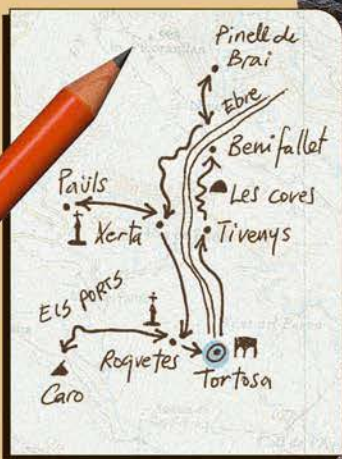 Pinell de
Brai
Ebre
Benifallet
Les coves
Paüls
Xerta
Tivenys
ELS PORTS
Roquetes
Caro
Tortosa